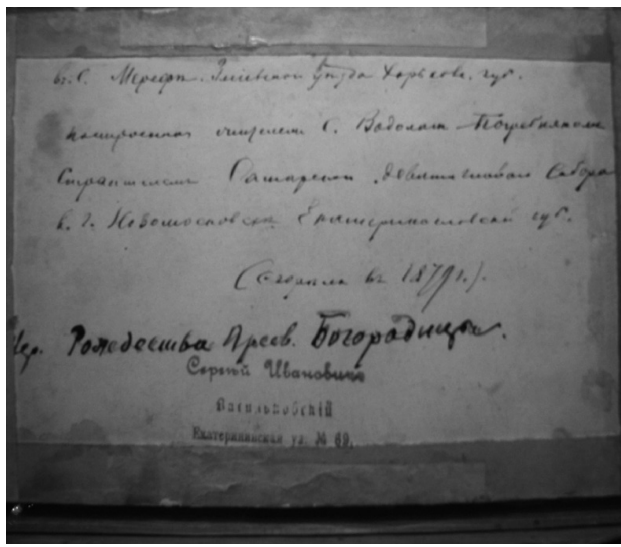 въ С. Мерефѣ. Зміевскаго Уѣзда Харьков. губ.
построенная жителемъ С. Водолаги Погребнякомъ
Строителемъ девятиглаваго Собора
в. г. Новомосковскѣ Екатеринославской губ.
(Сгорѣла въ 1879 г.).
Цер. Рождества Пресв. Богородицы.
Сергѣй Ивановичъ
Васильковскій
Екатерининская ул. № 69.